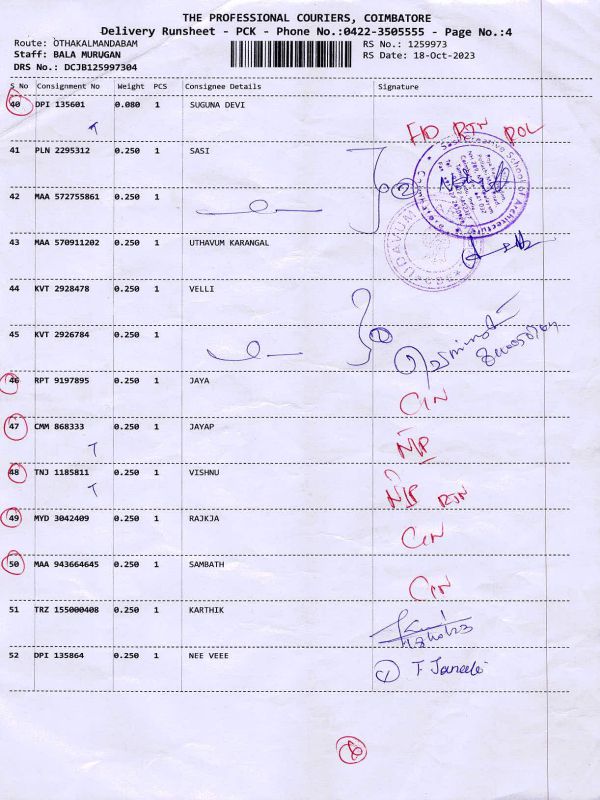 THE PROFESSIONAL COURIERS, COIMBATORE
Delivery Runsheet - PCK - Phone No.:0422-3505555 - Page No.:4
Route: OTHAKALMANDABAM RS No.: 1259973
Staff: BALA MURUGAN RS Date: 18-Oct-2023
DRS No.: DCJB125997304
S No Consignment No Weight PCS Consignee Details Signature
40 DPI 135601 0.080 1 SUGUNA DEVI
RTN
41 PLN 2295312 0.250 1 SASI
2
42 MAA 572755861 0.250 1
43 MAA 570911202 0.250 1 UTHAVUM KARANGAL
44 KVT 2928478 0.250 1 VELLI
45 KVT 2926784 0.250 1
46 RPT 9197895 0.250 1 JAYA
47 CMM 868333 0.250 1 JAYAP
T
48 TNJ 1185811 0.250 1 VISHNU
T
49 MYD 3042409 0.250 1 RAJKJA
50 MAA 943664645 0.250 1 SAMBATH
51 TRZ 155000408 0.250 1 KARTHIK
52 DPI 135864 0.250 1 NEE VEEE